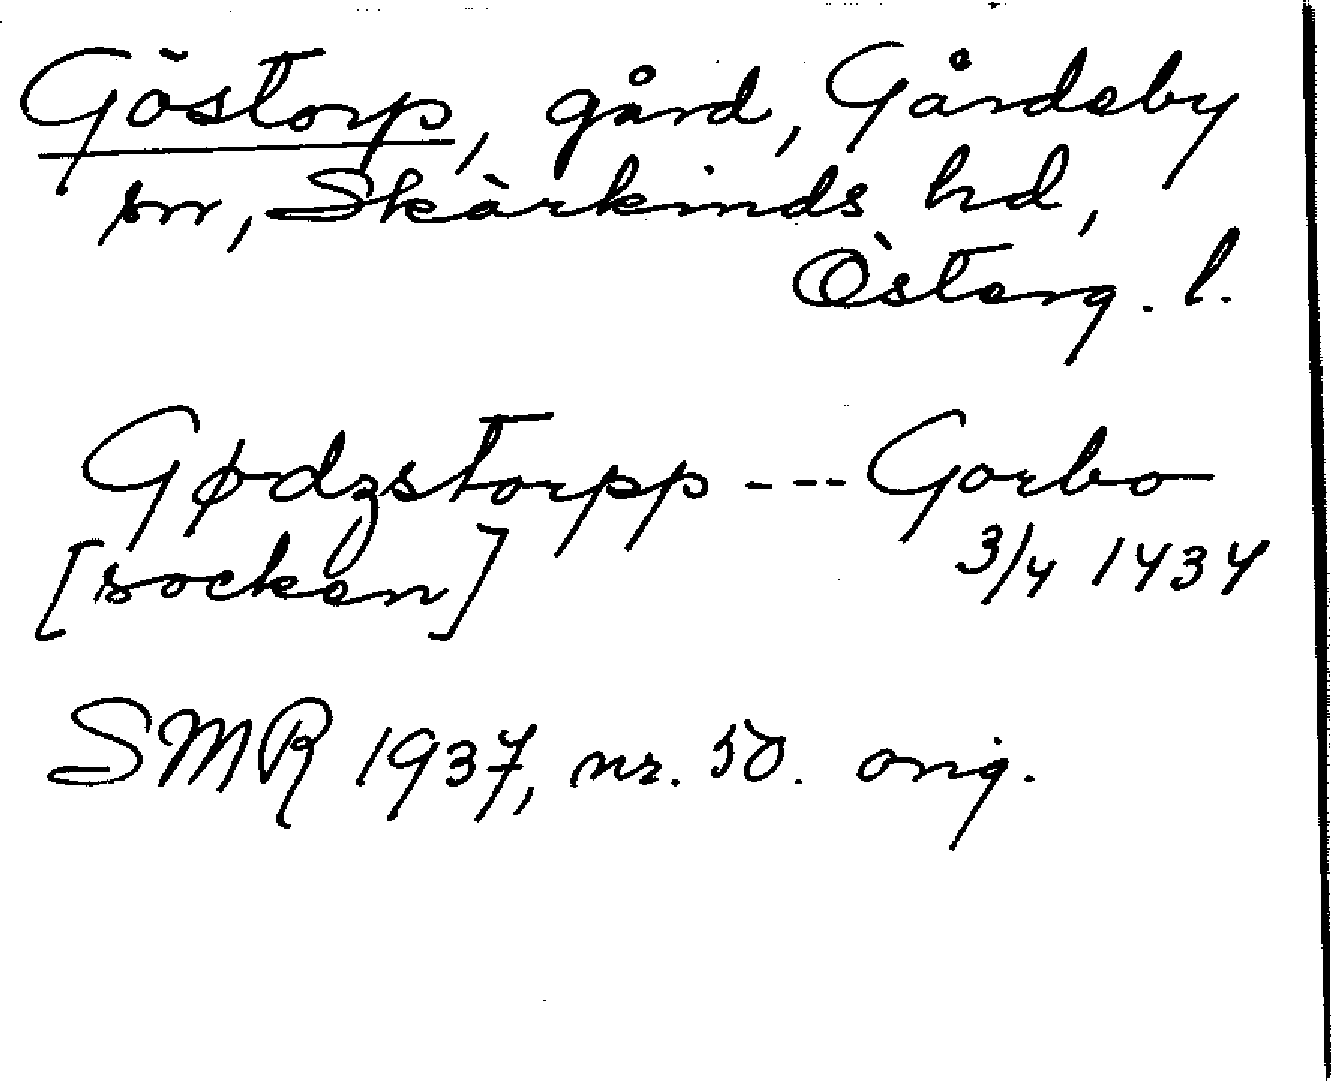 Göstorp, gård, Gårdeby
sn, Skärkinds hd,
Österg. l.
Gødzstorpp --- Gorbo
[socken] 3/4 1434
SMR 1937, nr. 50. orig.